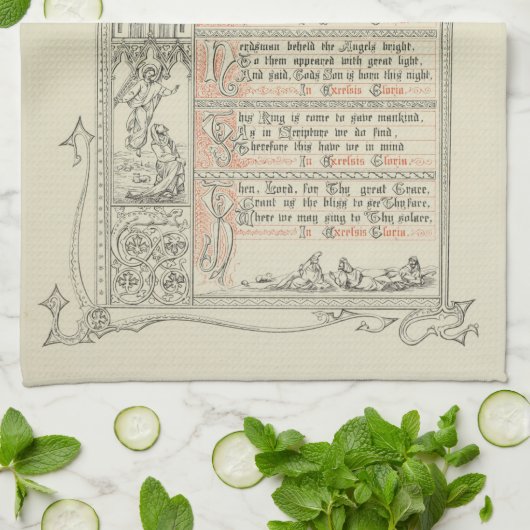 Herdsman beheld the Angels bright,
To them appeared with great light,
And said, Gods Son is born this night,
In Excelsis Gloria.
This King is come to save mankind,
As in Scripture we do find,
Therefore this have we in mind
In Excelsis Gloria.
Then, Lord, for Thy great Grace,
Grant us the bliss to see Thy face,
Where we may sing to Thy solace,
In Excelsis Gloria.